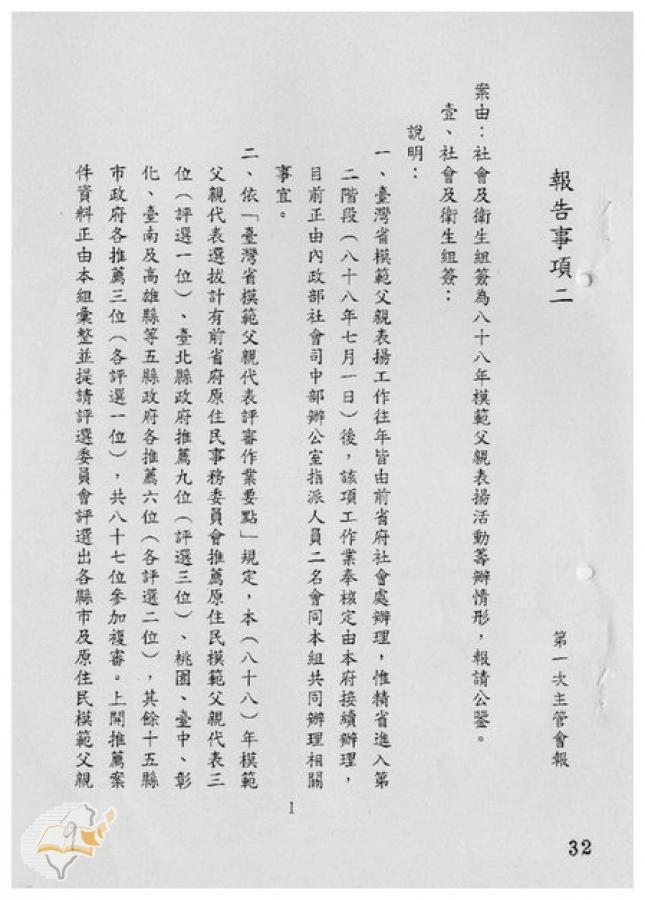 報告事項二
第一次主管會報
案由：社會及衛生組簽為八十八年模範父親表揚活動籌辦情形，報請公鑒。
壹、社會及衛生組簽：
說明：
一、臺灣省模範父親表揚工作往年皆由前省府社會處辦理，惟精省進入第
二階段（八十八年七月一日）後，該項工作業奉核定由本府接續辦理，
目前正由內政部社會司中部辦公室指派人員二名會同本組共同辦理相關
事宜。
二、依「臺灣省模範父親代表評審作業要點」規定，本（八十八）年模範
父親代表選拔計有前省府原住民事務委員會推薦原住民模範父親代表三
位（評選一位）、臺北縣政府推薦九位（評選三位）、桃園、臺中、彰
化、臺南及高雄縣等五縣政府各推薦六位（各評選二位），其餘十五縣
市政府各推薦三位（各評選一位），共八十七位參加複審。上開推薦案
件資料正由本組彙整並提請評選委員會評選出各縣市及原住民模範父親
1
32